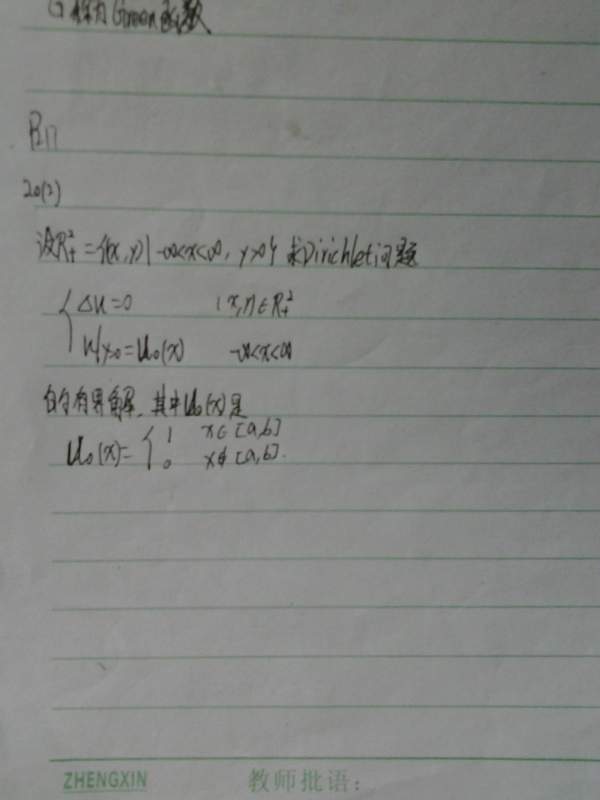 G 称为Green函数
P217
20(2)
设R²₊={(x,y)|-∞<x<∞, y>0} 求Dirichlet问题
{ Δu=0 (x,y)∈R²₊
u|y=0=u₀(x) -∞<x<∞
的有界解, 其中u₀(x)是
u₀(x)= { 1 x∈[a,b]
0 x∉[a,b].
ZHENGXIN 教师批语: